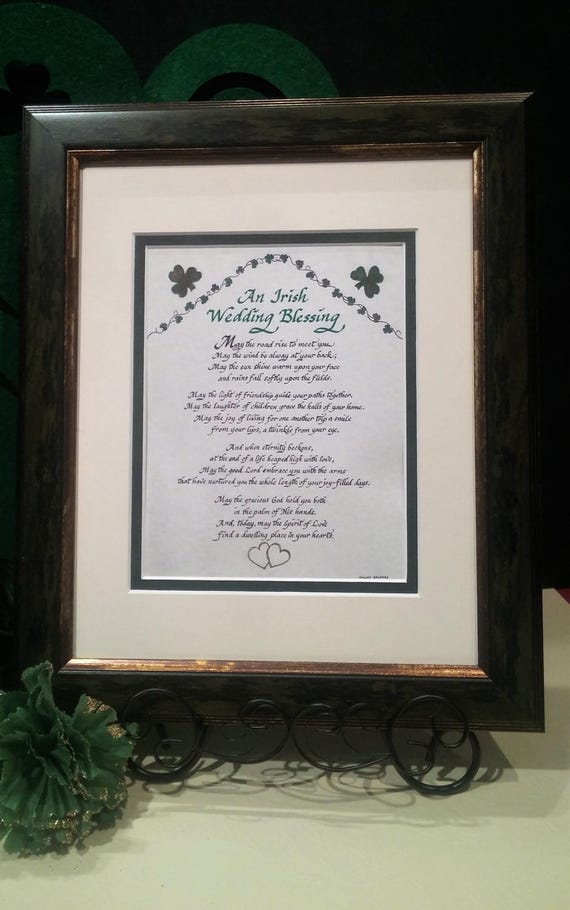 An Irish
Wedding Blessing
May the road rise to meet you.
May the wind be always at your back;
May the sun shine warm upon your face
and rains fall softly upon the fields.
May the light of friendship guide your paths together.
May the laughter of children grace the halls of your home.
May the joy of living for one another trip a smile
from your lips, a twinkle from your eye.
And when eternity beckons,
at the end of a life heaped high with love,
May the good Lord embrace you with the arms
that have nurtured you the whole length of your joy-filled days.
May the gracious God hold you both
in the palm of His hands.
And, today, may the Spirit of Love
find a dwelling place in your hearts.